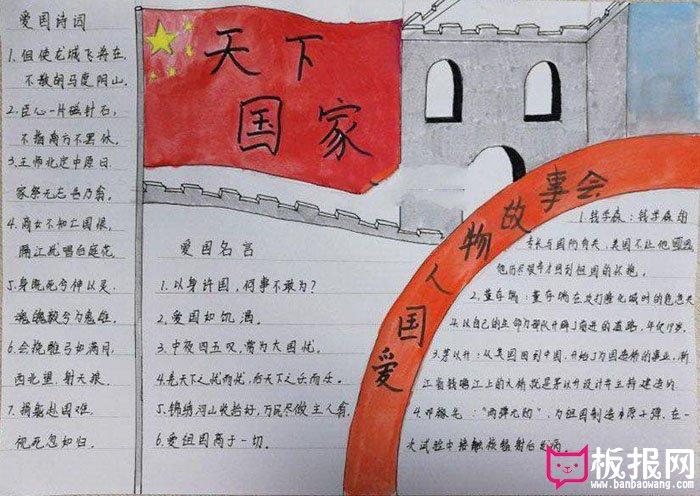 爱国诗词
1.但使龙城飞将在,
不教胡马度阴山。
2.臣心一片磁针石,
不指南方不罢休。
3.王师北定中原日
家祭无忘告乃翁。
4.商女不知亡国恨,
隔江犹唱后庭花。
5.身既死兮神以灵,
魂魄毅兮为鬼雄。
6.会挽雕弓如满月,
西北望,射天狼。
7.捐躯赴国难,
视死忽如归。
天下
国家
爱国名言
1.以身许国,何事不敢为?
2.爱国如饥渴。
3.中夜四五叹,常为大国忧。
4.先天下之忧而忧,后天下之乐而乐。
5.锦绣河山收拾好,万民尽做主人翁。
6.爱祖国高于一切。
爱国人物故事会
1.钱学森:钱学森的
专长与国防有关,美国不让他回国
他历尽艰辛才回到祖国的怀抱。
2.董存瑞:董存瑞在攻打隆化城时的危急关
以自己的生命为部队开辟了前进的道路,年仅19岁。
3.茅以升:从美国回到中国,开始了为国造桥的事业,浙
江省钱塘江上的大桥就是茅以升设计并主持建造的
4.邓稼先:"两弹元勋",为祖国制造 子弹,在一
次试验中接触核辐射
板报网
www.banbaowang.com